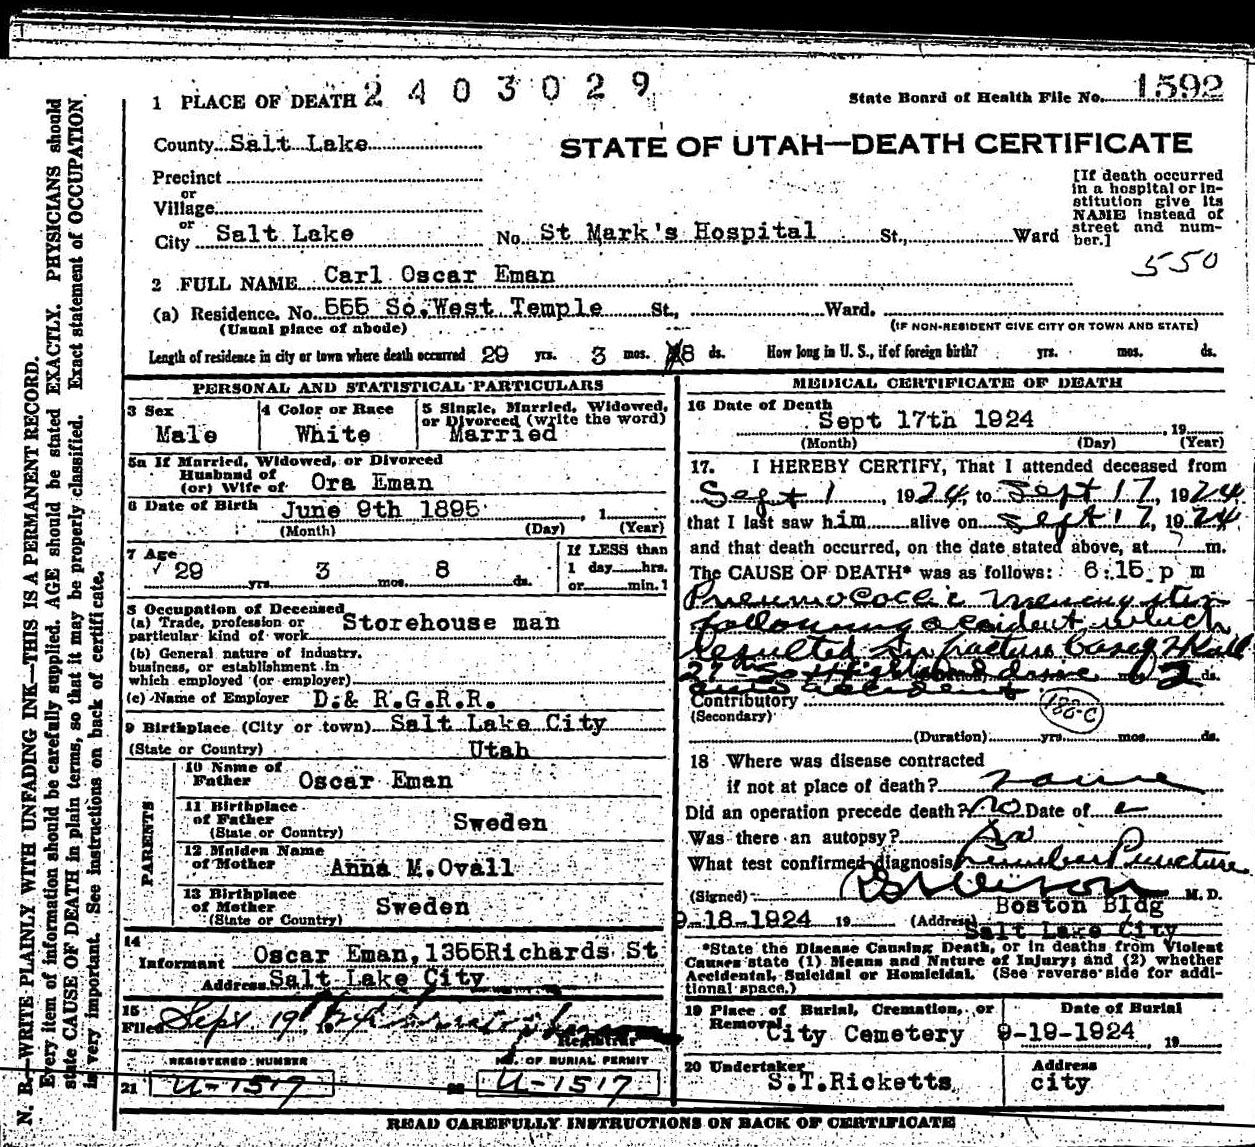 2403029
1 PLACE OF DEATH
State Board of Health File No. 1592
County Salt Lake
STATE OF UTAH—DEATH CERTIFICATE
Precinct
or
Village
or
City Salt Lake No. St Mark's Hospital St., Ward
[If death occurred
in a hospital or in-
stitution give its
NAME instead of
street and num-
ber.]
550
2 FULL NAME Carl Oscar Eman
(a) Residence. No. 555 So. West Temple St., Ward.
(Usual place of abode) (IF NON-RESIDENT GIVE CITY OR TOWN AND STATE)
Length of residence in city or town where death occurred 29 yrs. 3 mos. 8 ds. How long in U. S., if of foreign birth? yrs. mos. ds.
PERSONAL AND STATISTICAL PARTICULARS
3 Sex
Male
4 Color or Race
White
5 Single, Married, Widowed,
or Divorced (write the word)
Married
5a If Married, Widowed, or Divorced
Husband of
(or) Wife of Ora Eman
6 Date of Birth June 9th 1895 , 1
(Month) (Day) (Year)
7 Age
29 yrs. 3 mos. 8 ds.
If LESS than
1 day hrs.
or min.?
8 Occupation of Deceased
(a) Trade, profession or
particular kind of work Storehouse man
(b) General nature of industry,
business, or establishment in
which employed (or employer)
(c) Name of Employer D.& R.G.R.R.
9 Birthplace (City or town) Salt Lake City
(State or Country) Utah
PARENTS
10 Name of
Father Oscar Eman
11 Birthplace
of Father
(State or Country) Sweden
12 Maiden Name
of Mother Anna M.Ovall
13 Birthplace
of Mother
(State or Country) Sweden
14
Informant Oscar Eman,1355Richards St
Address Salt Lake City
15
Filed Sept 19th 1924
Registrar
REGISTERED NUMBER
21 U-1517
NO. OF BURIAL PERMIT
22 U-1517
MEDICAL CERTIFICATE OF DEATH
16 Date of Death
Sept 17th 1924 19
(Month) (Day) (Year)
17. I HEREBY CERTIFY, That I attended deceased from
Sept 1, 1924, to Sept 17, 1924
that I last saw him alive on Sept 17, 1924
and that death occurred, on the date stated above, at m.
The CAUSE OF DEATH* was as follows: 6:15 p m
Pneumococcic Meningitis
following accident which
resulted in fracture base of skull
27th So Highland drive
auto accident
Contributory
(Secondary)
188-C
(Duration) yrs. mos. ds.
18 Where was disease contracted
if not at place of death?
Did an operation precede death? No Date of
Was there an autopsy? No
What test confirmed diagnosis Lumbar Puncture
(Signed) M. D.
9-18-1924 19 (Address) Boston Bldg
Salt Lake City
*State the Disease Causing Death, or in deaths from Violent
Causes state (1) Means and Nature of Injury; and (2) whether
Accidental, Suicidal or Homicidal. (See reverse side for addi-
tional space.)
19 Place of Burial, Cremation, or
Removal City Cemetery
Date of Burial
9-19-1924 19
20 Undertaker
S.T.Ricketts
Address
city
READ CAREFULLY INSTRUCTIONS ON BACK OF CERTIFICATE
N. B.—WRITE PLAINLY WITH UNFADING INK—THIS IS A PERMANENT RECORD.
Every item of information should be carefully supplied. AGE should be stated EXACTLY. PHYSICIANS should
state CAUSE OF DEATH in plain terms, so that it may be properly classified. Exact statement of OCCUPATION
is very important. See instructions on back of certificate.